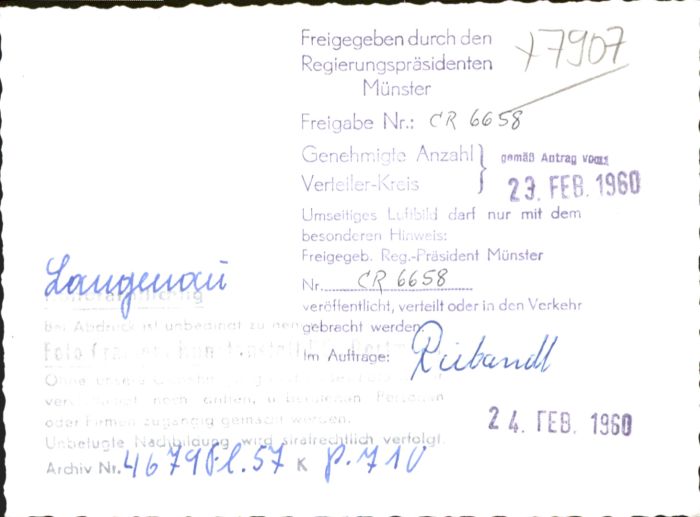 Freigegeben durch den
Regierungspräsidenten
Münster
+7907
Freigabe Nr.: CR 6658
Genehmigte Anzahl } gemäß Antrag vom:
Verteiler-Kreis 23. FEB. 1960
Umseitiges Luftbild darf nur mit dem
besonderen Hinweis:
Freigegeb. Reg.-Präsident Münster
Nr. CR 6658
veröffentlicht, verteilt oder in den Verkehr
gebracht werden.
Im Auftrage:
24. FEB. 1960
Langenau
Bei Abdruck ist unbedingt zu
Foto
Ohne unsere
noch dritten,
oder Firmen zugängig gemacht werden.
Unbefugte Nachbildung wird strafrechtlich verfolgt.
Archiv Nr. 4679 Fl. 57 K P. 710